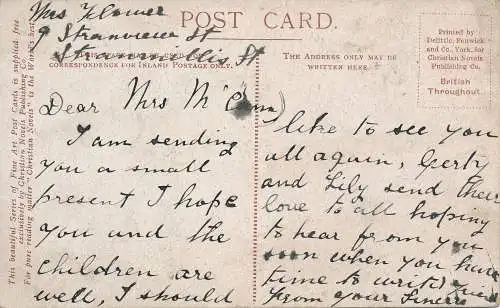 Mrs Flower
9 Stranview St
Stranmillis St
POST CARD.
CORRESPONDENCE FOR INLAND POSTAGE ONLY.
THE ADDRESS ONLY MAY BE
WRITTEN HERE.
Printed by
Delittle, Fenwick
and Co., York, for
Christian Novels
Publishing Co.
British
Throughout.
This beautiful Series of Fine Art Post Cards is supplied free
exclusively by Christian Novels Publishing Co.
For fine reading matter "Christian Novels" is the World's best.
Dear Mrs
I am sending
you a small
present I hope
you and the
children are
well, I should
like to see you
all again, Gerty
and Lily send their
love to all hoping
to hear from you
soon when you have
time to write
From your